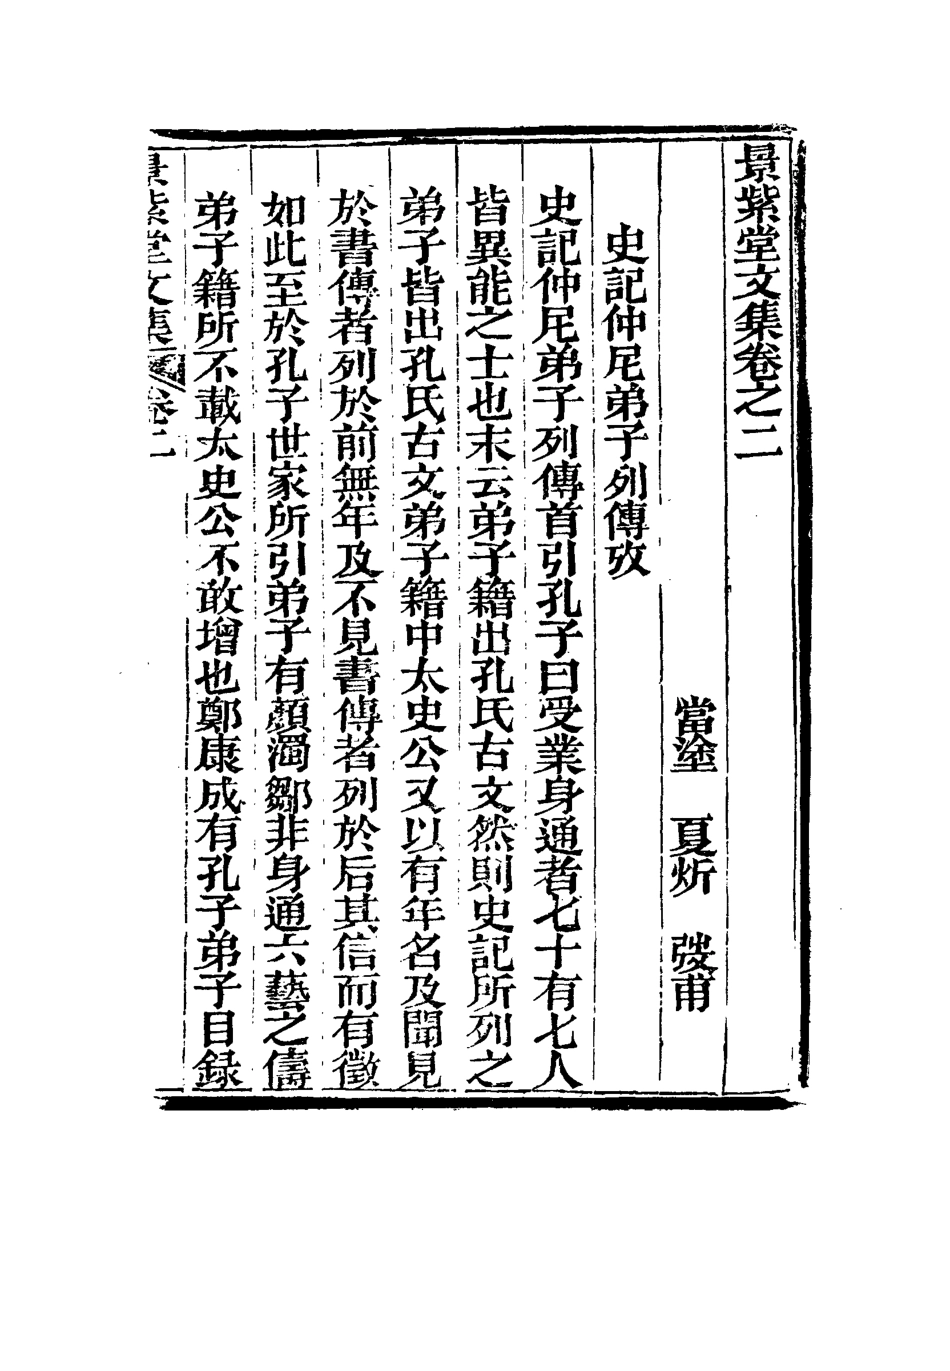 景紫堂文集卷之二
當塗　夏炘　弢甫
史記仲尼弟子列傳攷
史記仲尼弟子列傳首引孔子曰受業身通者七十有七人
皆異能之士也末云弟子籍出孔氏古文然則史記所列之
弟子皆出孔氏古文弟子籍中太史公又以有年名及聞見
於書傳者列於前無年及不見書傳者列於后其信而有徵
如此至於孔子世家所引弟子有顏濁鄒非身通六藝之儔
弟子籍所不載太史公不敢增也鄭康成有孔子弟子目錄
景紫堂文集 卷二